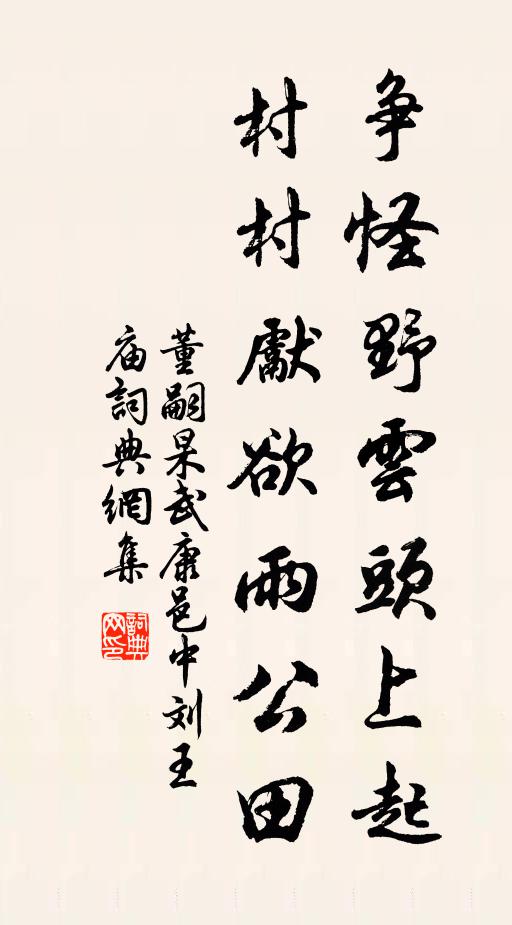 争怪野雲頭上起
村村獻欲雨公田
董嗣杲武康邑中刘王
庙詞典網集
詞典
网印